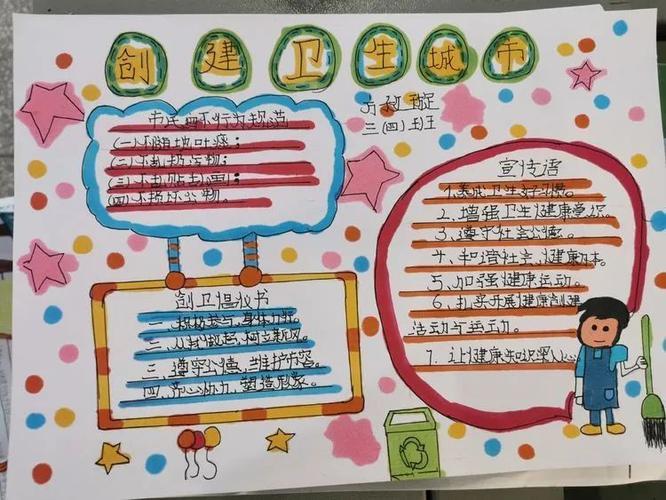 创建卫生城市
三(四)班
市民四不行为规范
(一)不随地吐痰;
(二)不乱扔杂物;
(三)不乱贴乱画;
(四)不损坏公物。
创卫倡议书
一、积极参与,身体力行。
二、从我做起,树立新风。
三、遵守公德,维护市容。
四、齐心协力,塑造形象。
宣传语
1.养成卫生好习惯。
2.增强卫生健康意识。
3.遵守社会公德。
4.和谐社会,健康为本。
5.加强健康运动。
6.扎实开展健康创建
活动与运动。
7.让健康知识深入人心